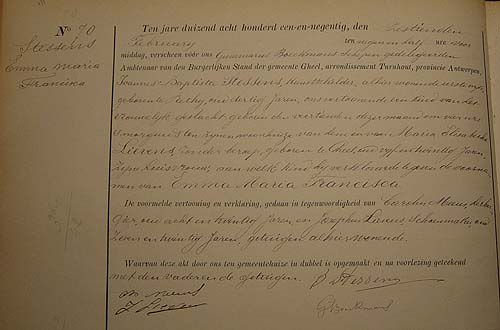 N° 70
Stessens
Emma Maria
Francisca
Ten jare duizend acht honderd een-en-negentig, den zestienden
February ten negen en half ure voor
middag, verscheen vóór ons Gummarus Boeckmans Schepen gedelegeerden
Ambtenaar van den Burgerlijken Stand der gemeente Gheel, arrondissement Turnhout, provincie Antwerpen,
Joannes Baptista Stessens, kunstschilder, alhier wonende
geboren te Rethy, oud dertig Jaren, ons vertoonende een kind van het
vrouwelijk geslacht, geboren den veertienden dezer maand om vier ure
's morgends ten zynen woonhuize van hem en van Maria Elisabetha
Lievens, zonder beroep, geboren te Gheel, oud vyf en twintig Jaren,
zyne huisvrouw, aan welk kind hy verklaarde te geven de voorna-
men van Emma Maria Francisca.
De voormelde vertooning en verklaring, gedaan in tegenwoordigheid van Carolus
oud acht en twintig Jaren, en Josephus Lievens, Schoenmaker, oud
zeven en twintig Jaren, getuigen alhier wonende.
Waarvan deze akt door ons ten gemeentehuize in dubbel is opgemaakt en na voorlezing geteekend
met den vader en de getuigen.